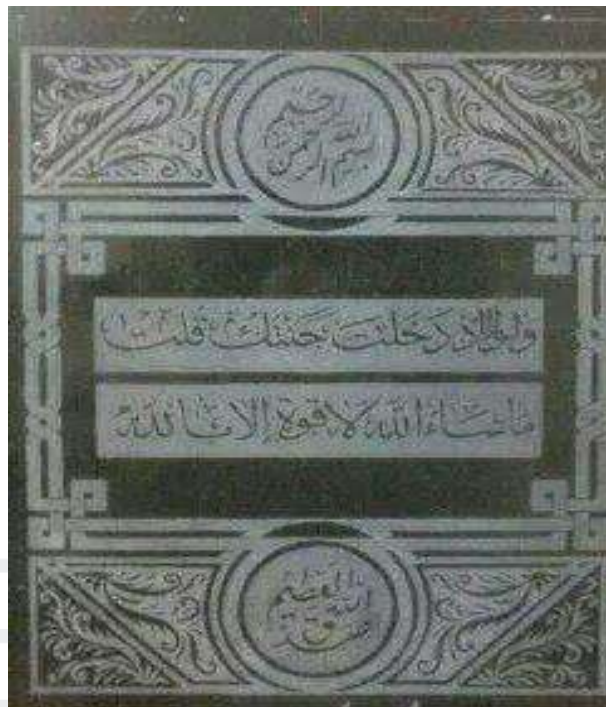 بسم الله الرحمن الرحيم
ولولا إذ دخلت جنتك قلت
ما شاء الله لا قوة إلا بالله
صدق الله العظيم